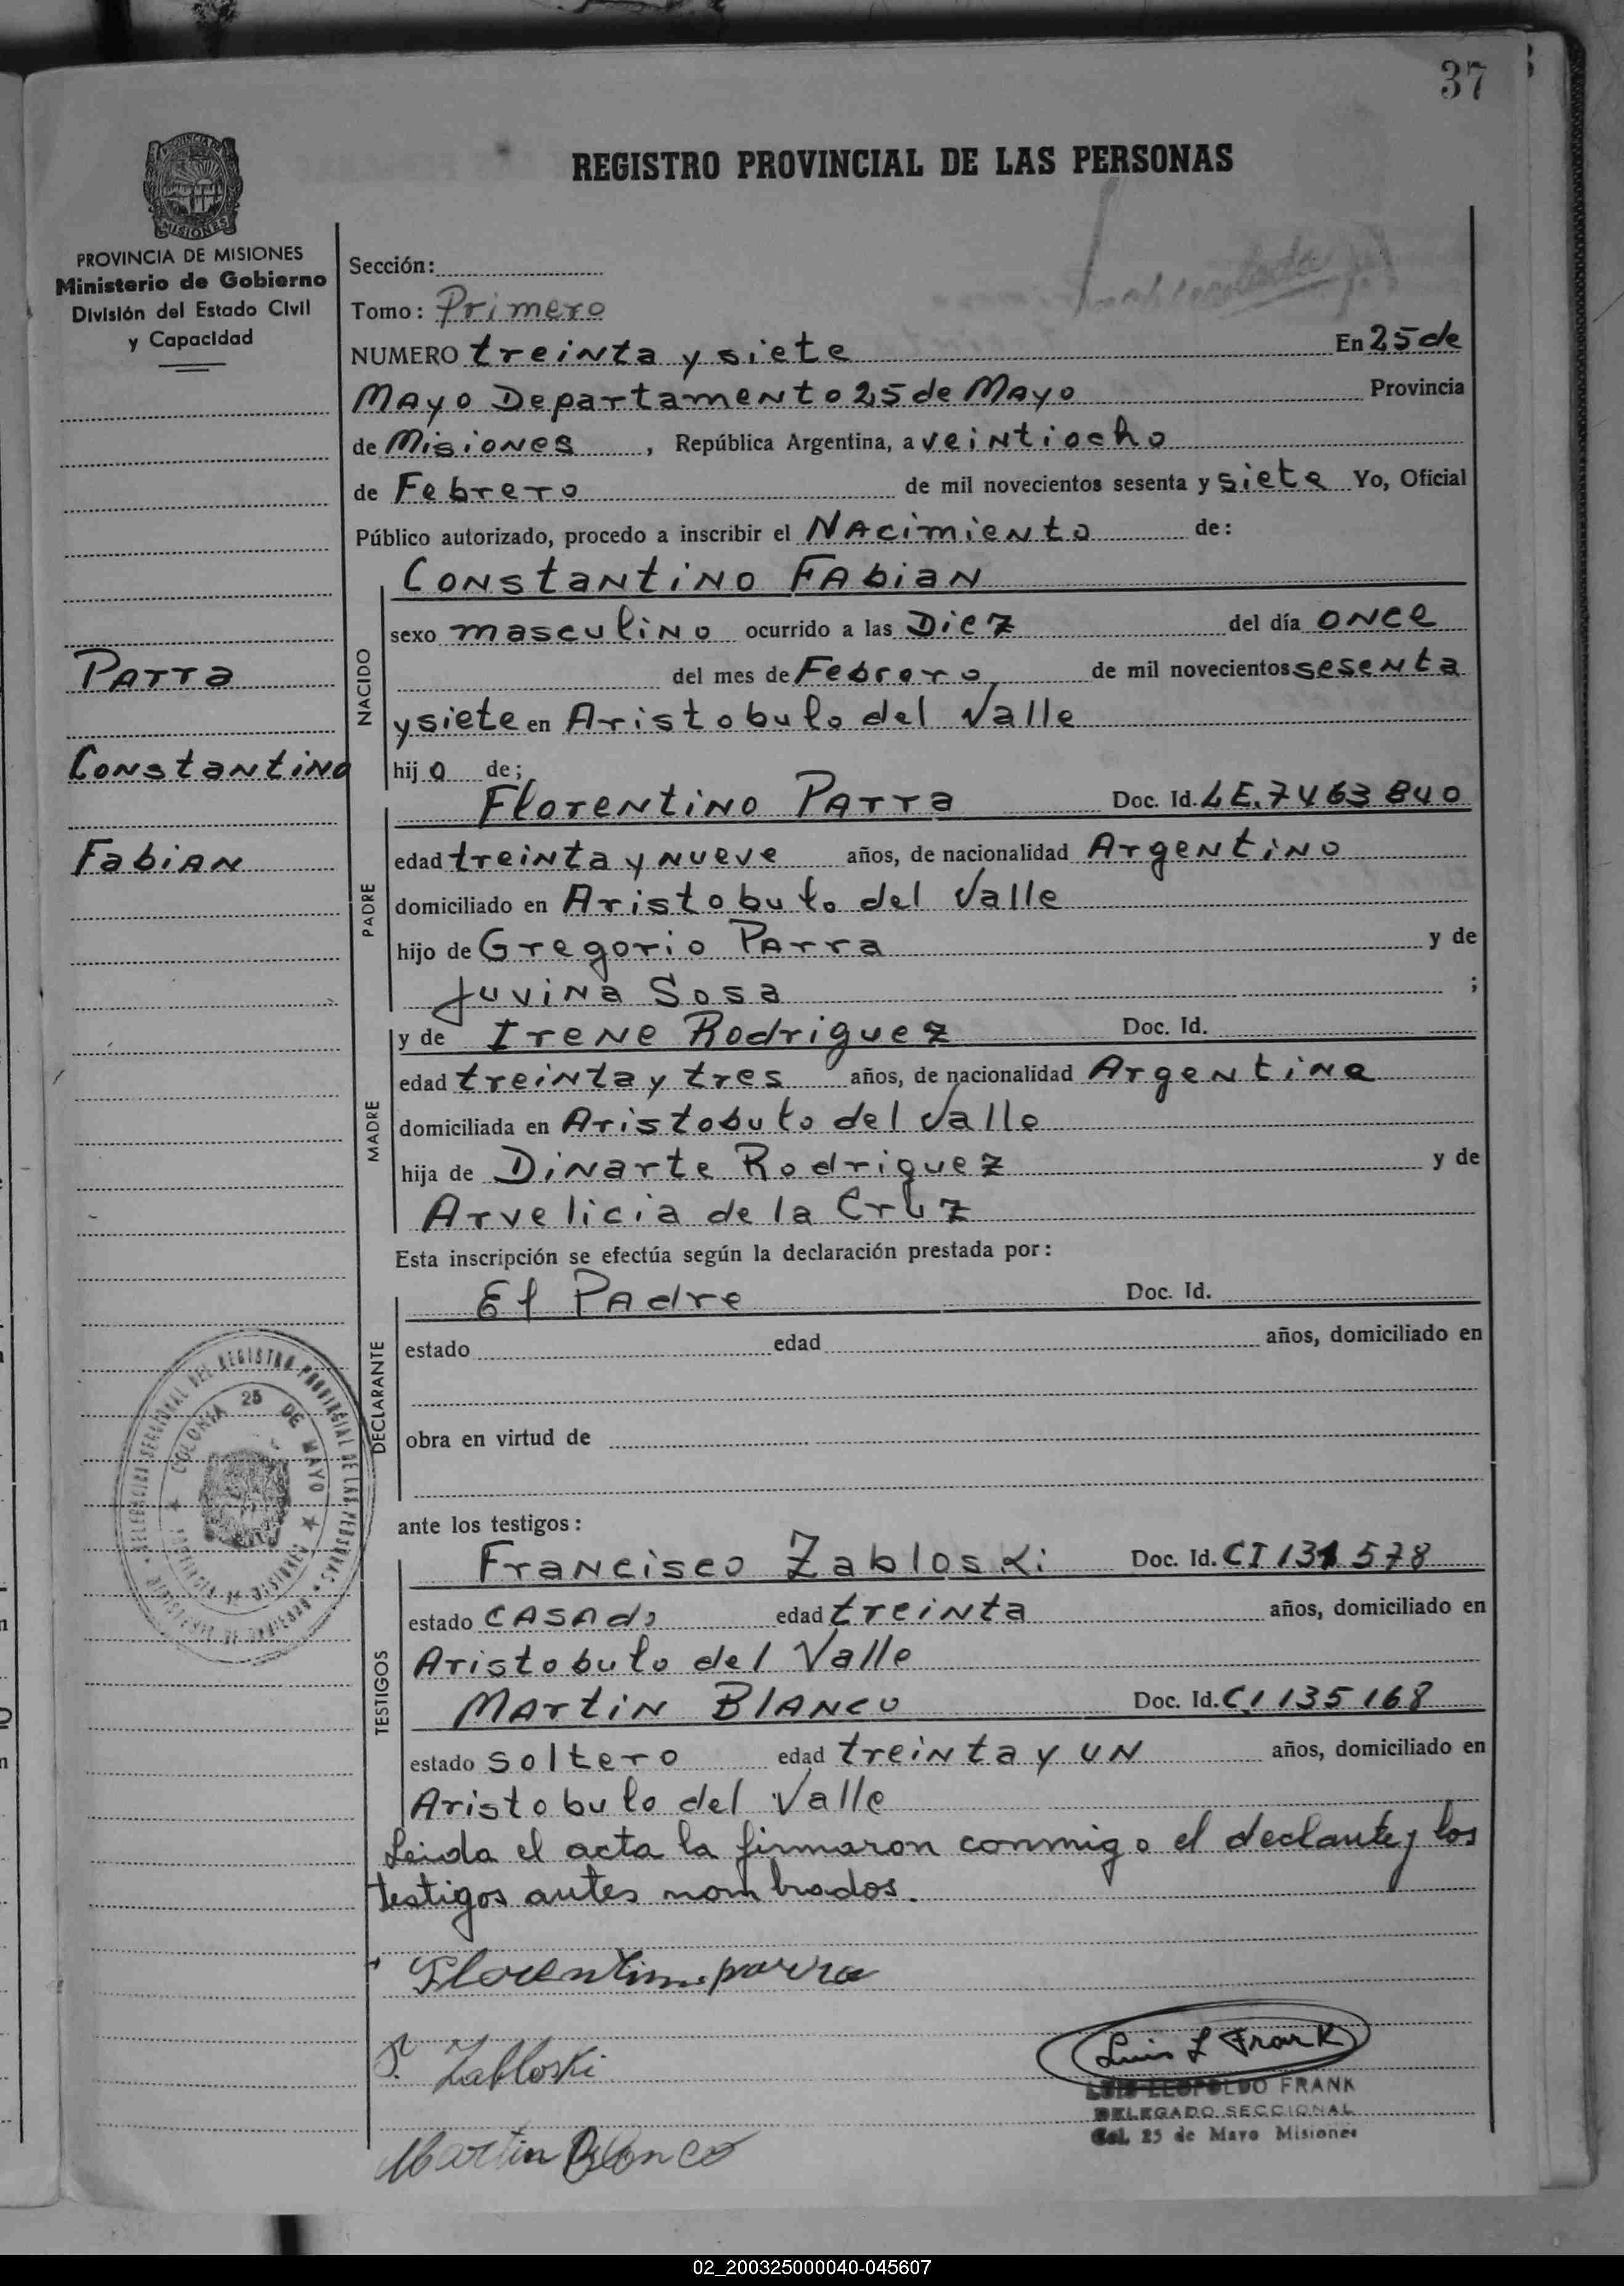 37
REGISTRO PROVINCIAL DE LAS PERSONAS
MISIONES
PROVINCIA DE MISIONES
Ministerio de Gobierno
División del Estado Civil
y Capacidad
Parra
Constantino
Fabian
Sección:
Tomo: Primero
NUMERO treinta y siete En 25 de
Mayo Departamento 25 de Mayo Provincia
de Misiones, República Argentina, a veintiocho
de Febrero de mil novecientos sesenta y siete Yo, Oficial
Público autorizado, procedo a inscribir el Nacimiento de:
Constantino Fabian
NACIDO
sexo masculino ocurrido a las Diez del día once
del mes de Febrero de mil novecientos sesenta
y siete en Aristobulo del Valle
hijo de;
PADRE
Florentino Parra Doc. Id. LE.7463840
edad treinta y nueve años, de nacionalidad Argentino
domiciliado en Aristobulo del Valle
hijo de Gregorio Parra y de
Juvina Sosa ;
MADRE
y de Irene Rodriguez Doc. Id.
edad treinta y tres años, de nacionalidad Argentina
domiciliada en Aristobulo del Valle
hija de Dinarte Rodriguez y de
Arvelicia de la Cruz
Esta inscripción se efectúa según la declaración prestada por:
DECLARANTE
El Padre Doc. Id.
estado edad años, domiciliado en
obra en virtud de
ante los testigos:
TESTIGOS
Francisco Zabloski Doc. Id. CI 131578
estado casado edad treinta años, domiciliado en
Aristobulo del Valle
Martin Blanco Doc. Id. C.I 135168
estado soltero edad treinta y un años, domiciliado en
Aristobulo del Valle
Leida el acta la firmaron conmigo el declante y los
testigos antes nombrados.
Florentino parra
Zabloski
Martin Blanco
Luis L Frank
LUIS LEOPOLDO FRANK
DELEGADO SECCIONAL
Col. 25 de Mayo Misiones
DEL REGISTRO PROVINCIAL DE LAS PERSONAS
COLONIA 25 DE MAYO
02_200325000040-045607